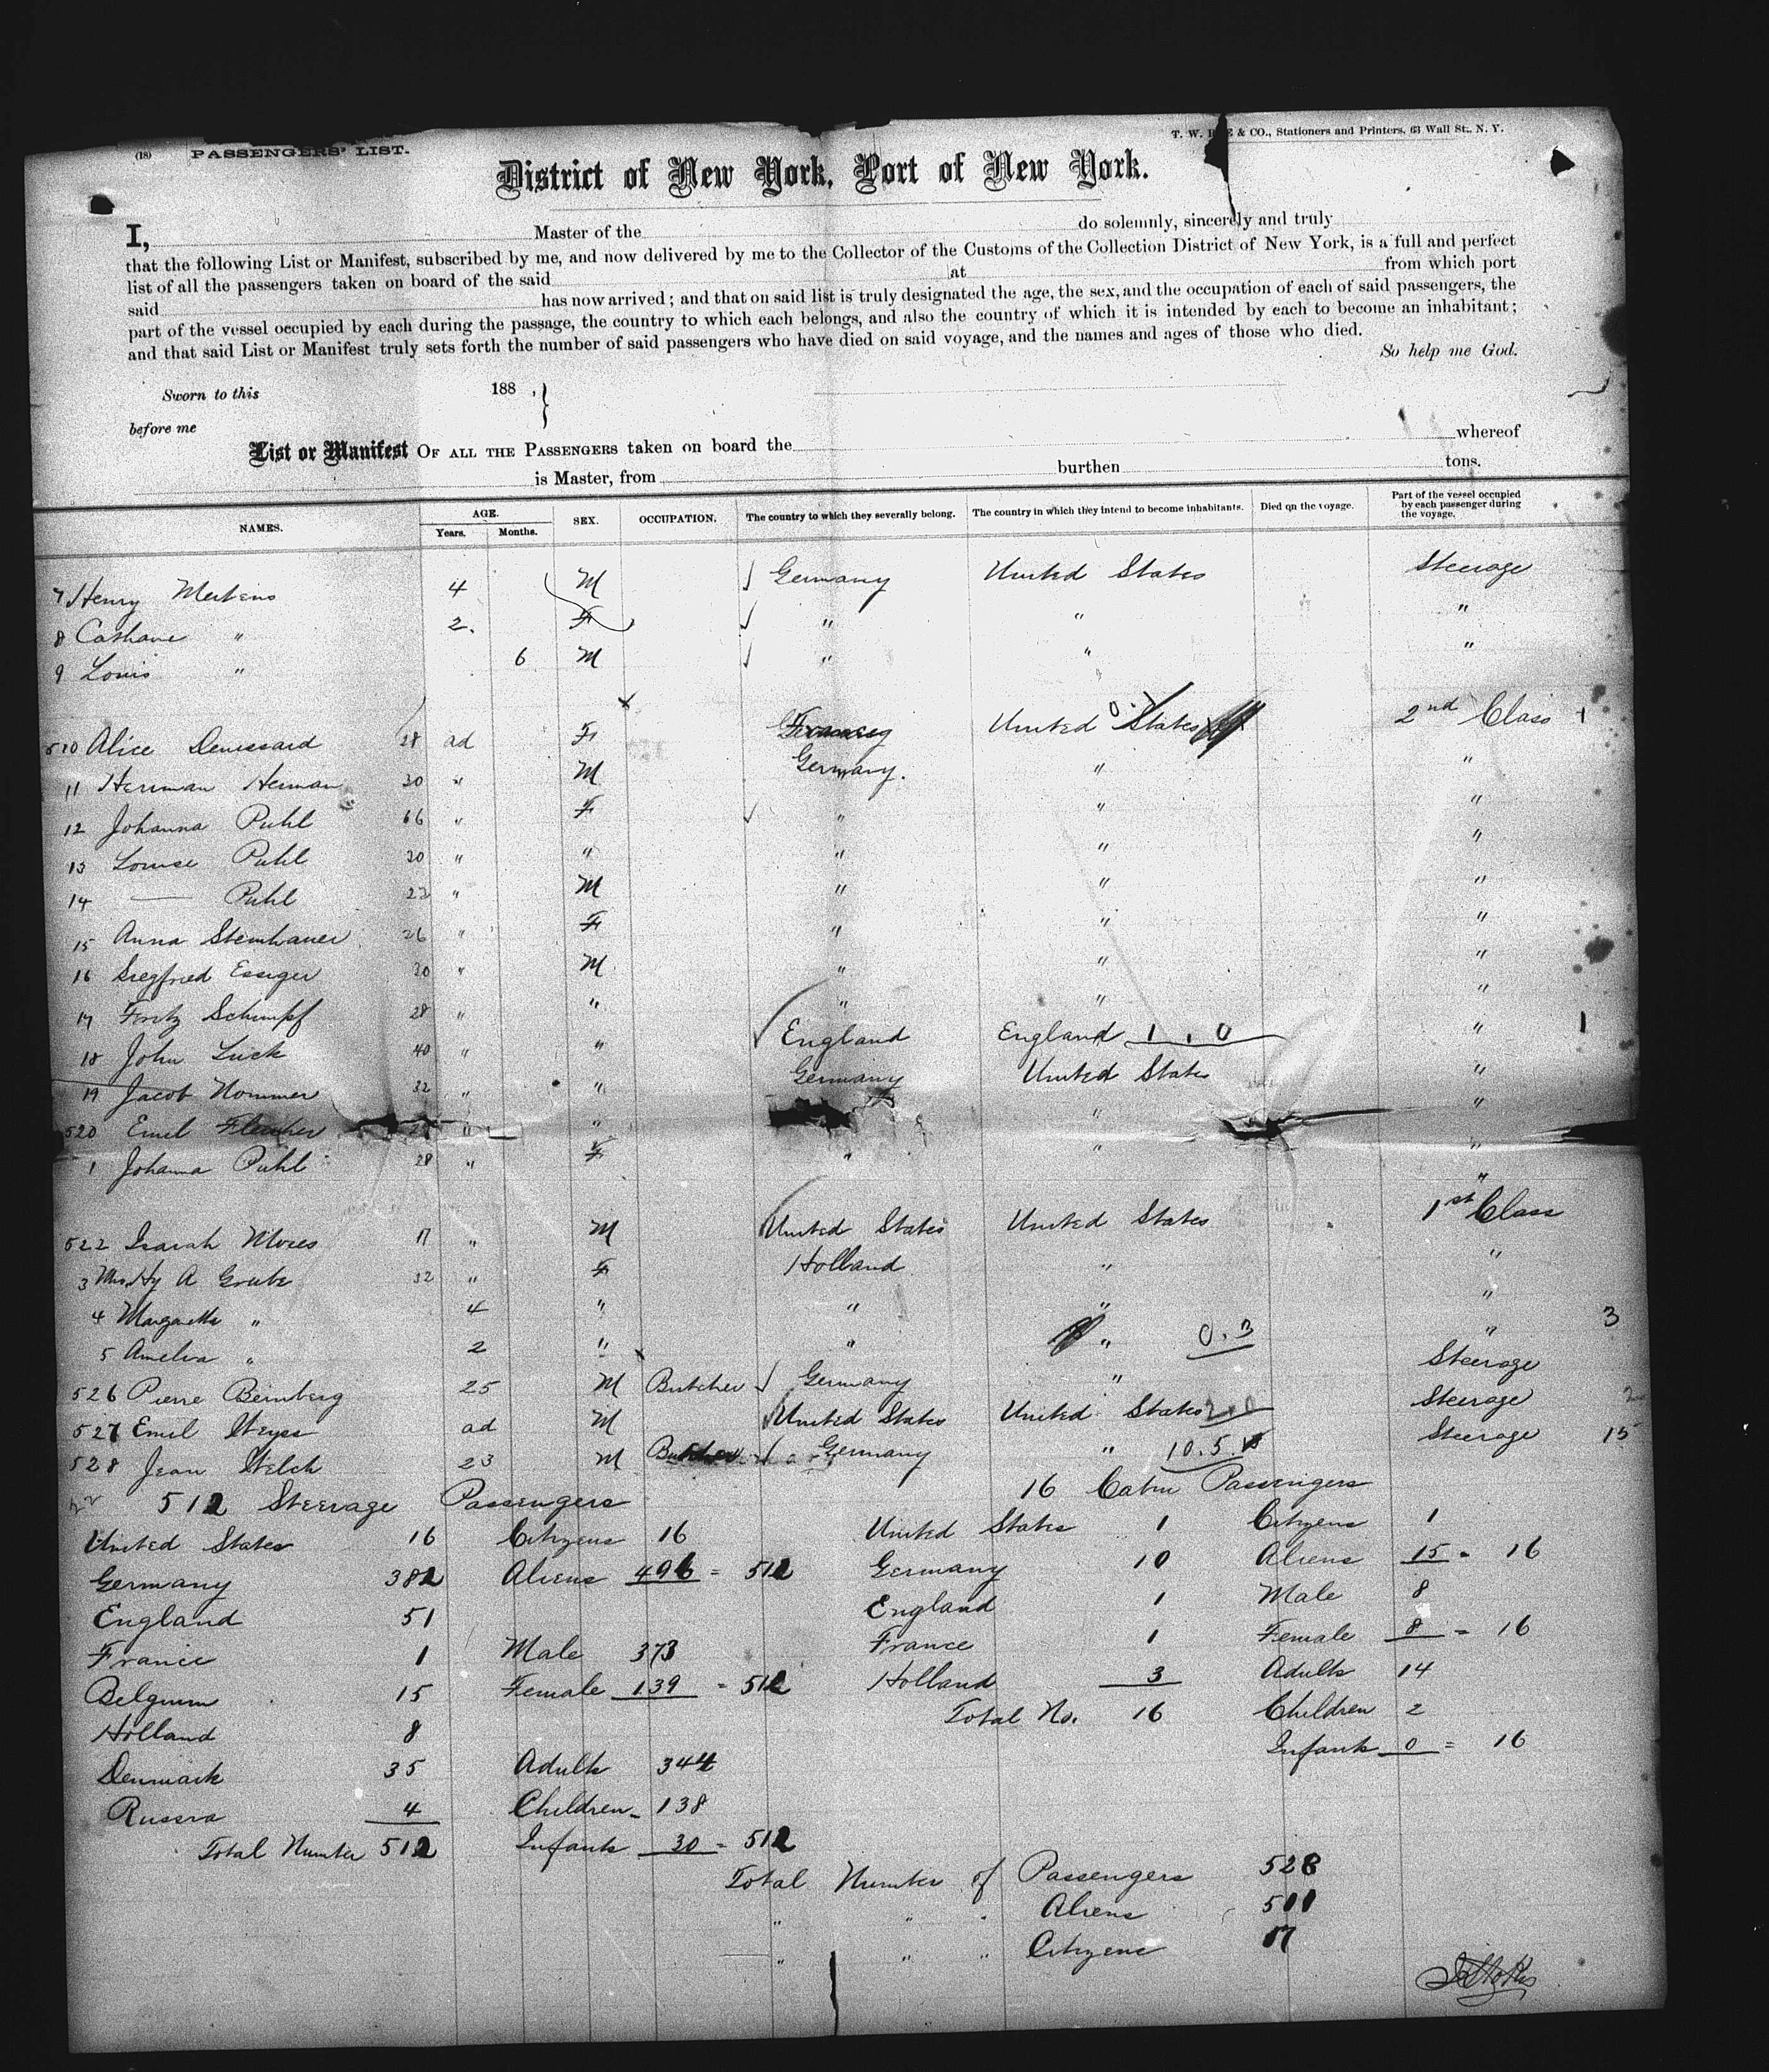 (18) PASSENGERS' LIST.
T. W. & CO., Stationers and Printers, 63 Wall St., N. Y.
District of New York, Port of New York.
I, Master of the do solemnly, sincerely and truly
that the following List or Manifest, subscribed by me, and now delivered by me to the Collector of the Customs of the Collection District of New York, is a full and perfect
list of all the passengers taken on board of the said at from which port
said has now arrived; and that on said list is truly designated the age, the sex, and the occupation of each of said passengers, the
part of the vessel occupied by each during the passage, the country to which each belongs, and also the country of which it is intended by each to become an inhabitant;
and that said List or Manifest truly sets forth the number of said passengers who have died on said voyage, and the names and ages of those who died.
So help me God.
Sworn to this 188 , }
before me
List or Manifest OF ALL THE PASSENGERS taken on board the whereof
is Master, from burthen tons.
NAMES. AGE. Years. Months. SEX. OCCUPATION. The country to which they severally belong. The country in which they intend to become inhabitants. Died on the voyage. Part of the vessel occupied by each passenger during the voyage.
7 Henry Mertens 4 M Germany United States Steerage
8 " 2. F " " "
9 Louis " 6 M " " "
510 Alice 28 ad F United States 2nd Class 1
11 Herman Herman 30 " M Germany. " "
12 Johanna Puhl 66 " F " " "
13 Louise Puhl 30 " " " " "
14 — Puhl 22 " M " " "
15 Anna Steinhauer 26 " F " " "
16 Siegfried Essiger 20 " M " " "
17 Fritz Schimpf 28 " " " " "
18 John Luck 40 " " England England 1 . 0 " 1
19 Jacob Nommer 32 " " Germany United States "
520 Emil " " " "
1 Johanna Puhl 28 " F " " "
522 Isaiah Moses 17 " M United States United States 1st Class
3 Mrs Hy A Grube 32 " F Holland " "
4 Margaretha " 4 " " " "
5 Amelia " 2 " " " 0.3 " 3
526 Pierre Bernberg 25 M Butcher Germany " Steerage
527 Emil ad M United States United States 2.0 Steerage 2
528 Jean Welch 23 M Germany " 10.5 Steerage 15
512 Steerage Passengers 16 Cabin Passengers
United States 16 Citizens 16 United States 1 Citizens 1
Germany 382 Aliens 496 = 512 Germany 10 Aliens 15 = 16
England 51 England 1 Male 8
France 1 Male 373 France 1 Female 8 = 16
Belgium 15 Female 139 = 512 Holland 3 Adults 14
Holland 8 Total No. 16 Children 2
Denmark 35 Adults 344 Infants 0 = 16
Russia 4 Children 138
Total Number 512 Infants 30 = 512
Total Number of Passengers 528
" " " Aliens 511
" " " Citizens 17